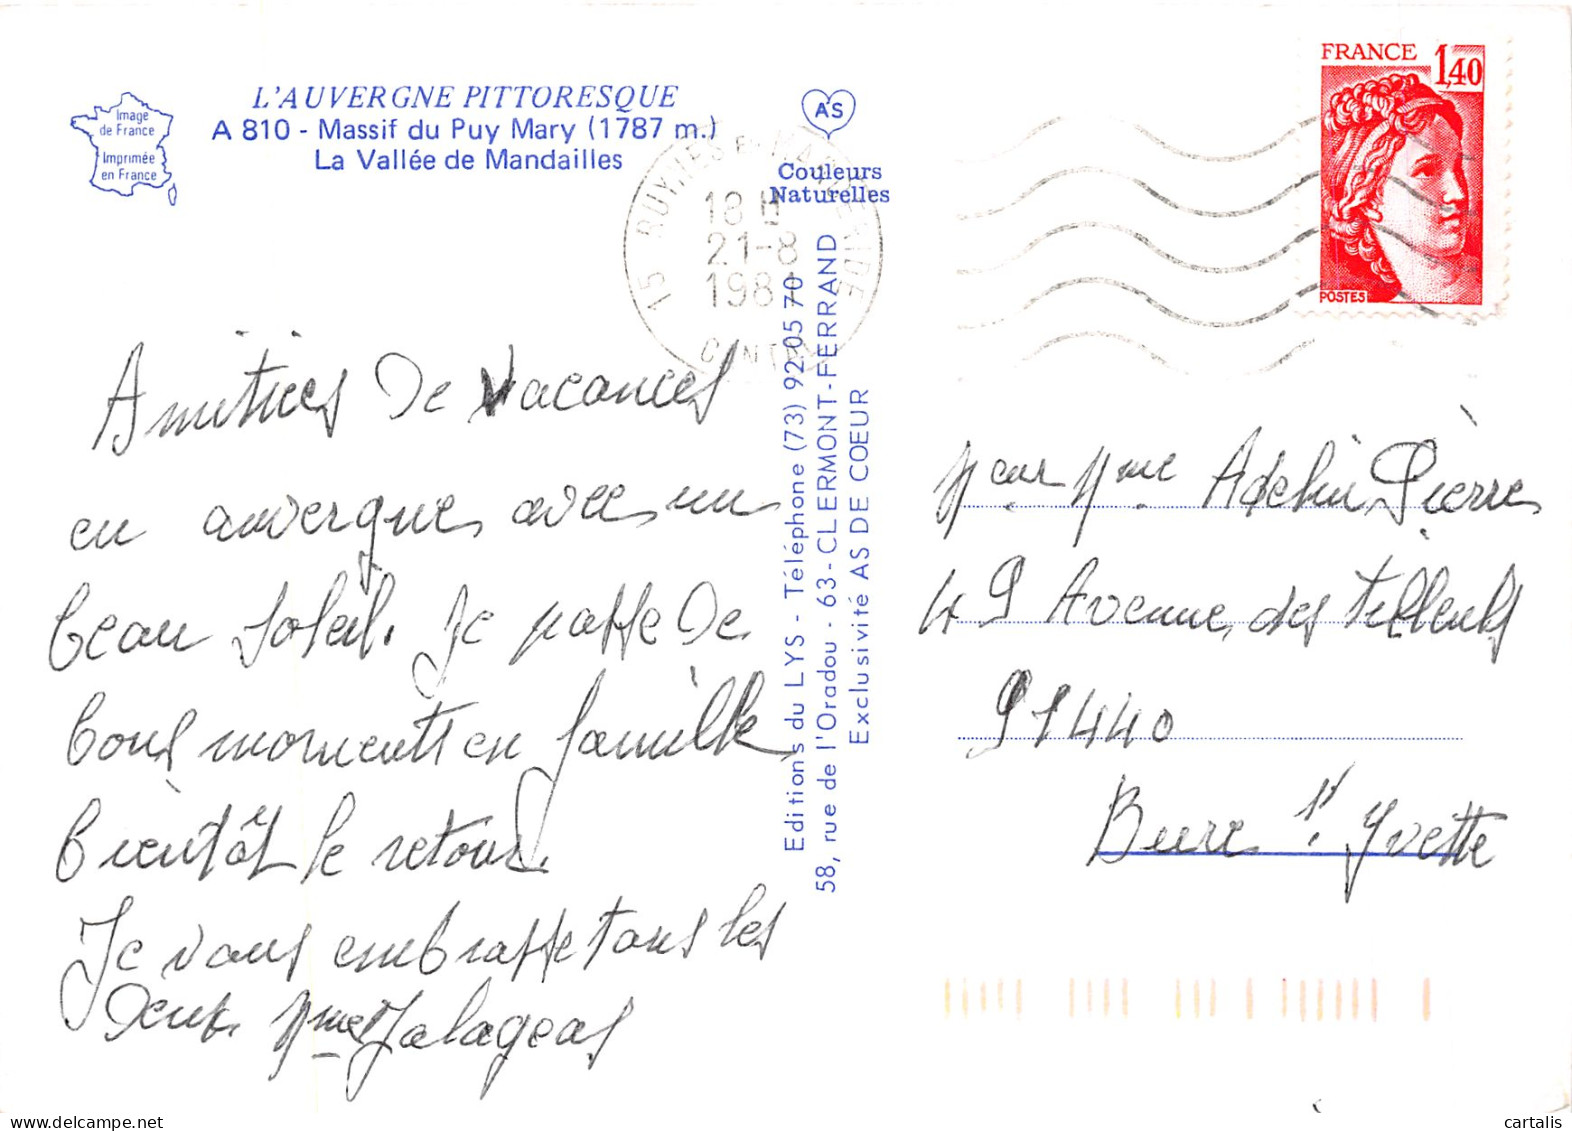 Image
de France
Imprimée
en France
L'AUVERGNE PITTORESQUE
A 810 - Massif du Puy Mary (1787 m.)
La Vallée de Mandailles
AS
Couleurs
Naturelles
15 RUYNES EN MARGERIDE
18 H
21-8
1981
CANTAL
FRANCE 1,40
POSTES
Amitiées De Vacances
en auvergne, avec un
beau soleil. Je passe De
bons moments en famille
bientôt le retour.
Je vous embrasse tous les
Deux. Mme Jalageas
Editions du LYS - Téléphone (73) 92 05 70
58, rue de l'Oradou - 63 - CLERMONT-FERRAND
Exclusivité AS DE COEUR
Mme Adelin Pierre
49 Avenue, des Tilleuls
91440
Bure s/ Yvette
cartalis